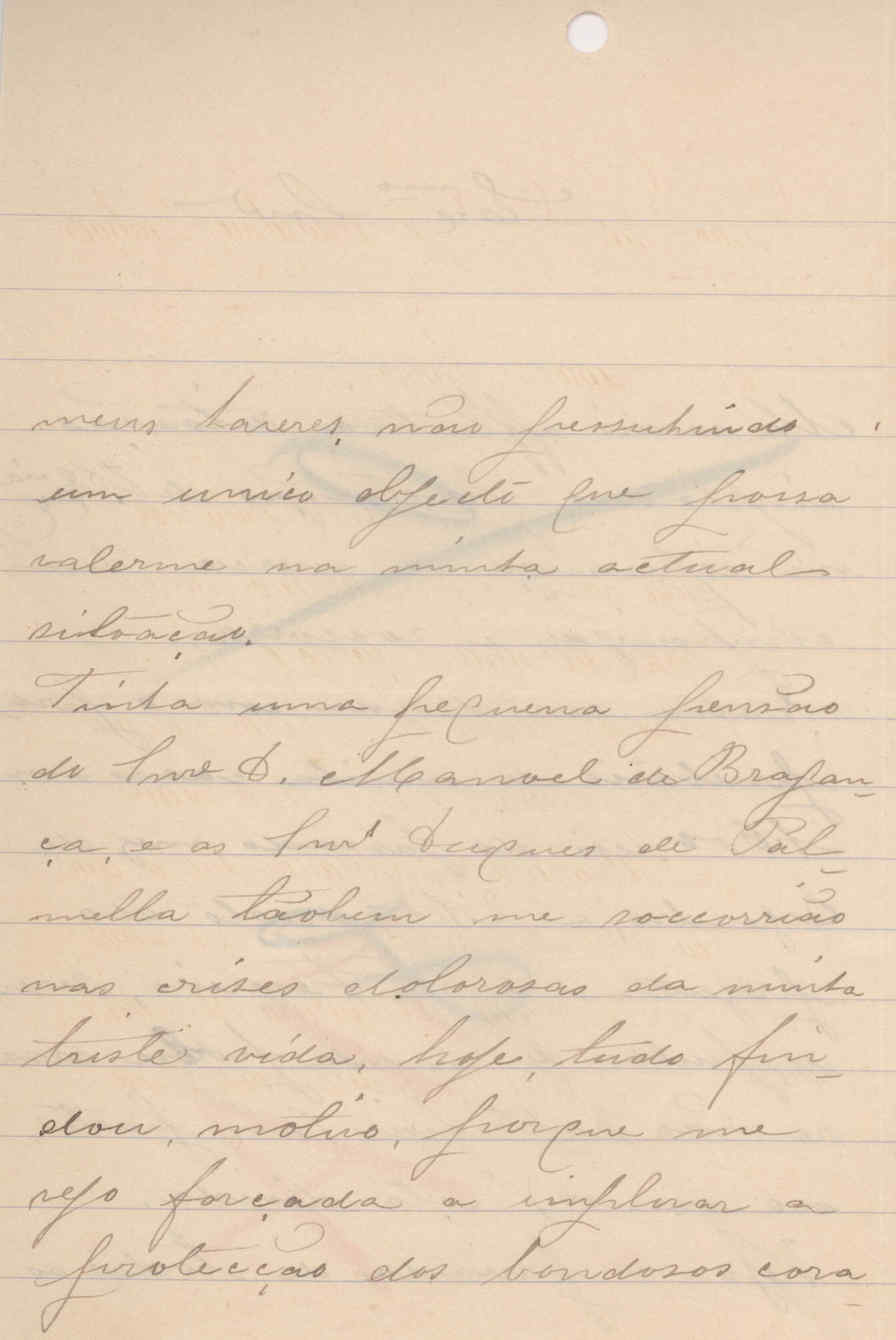 meus haveres, não possuhindo
um unico objecto que possa
valerme na minha actual
sitoação.
Tinha uma pequena pensão
do Snr. D. Manoel de Bragan-
ça, e os Snrs Duques de Pal-
mella tãobem me soccorrião
nas crises dolorosas da minha
triste vida, hoje, tudo fin-
dou, motivo, porque me
vejo forçada a implorar a
protecção dos bondosos cora